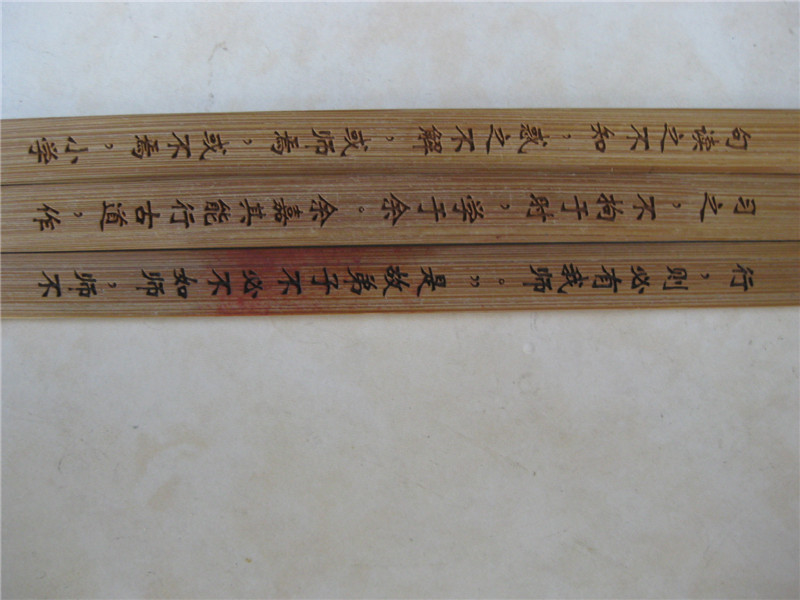 句读之不知，惑之不解，或师焉，或不焉，小学
习之，不拘于时，学于余。余嘉其能行古道，作
行，则必有我师。”是故弟子不必不如师，师不